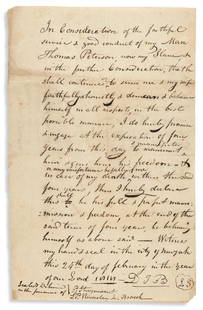 In Consideration of the faithful
service & good conduct of my Man
Thomas Peterson, now my Slave &
in the further Consideration, that he
shall continue to serve me
faithfully, honestly & demean & behave
himself in all respects, in the best
possible manner, I do hereby promise
& ingage at the expiration of four
years from this day to manumit
him & give him his freedom
in case of my death, within the said
four years, then I hereby declare
this to be his full & prompt manu
mission & freedom, at the end of the
said term of four years, he behaving
himself as above said — Witness
my hand & seal in the city of
this 24th day of february in the year
of our Lord
Sealed & delivered
in the presence of